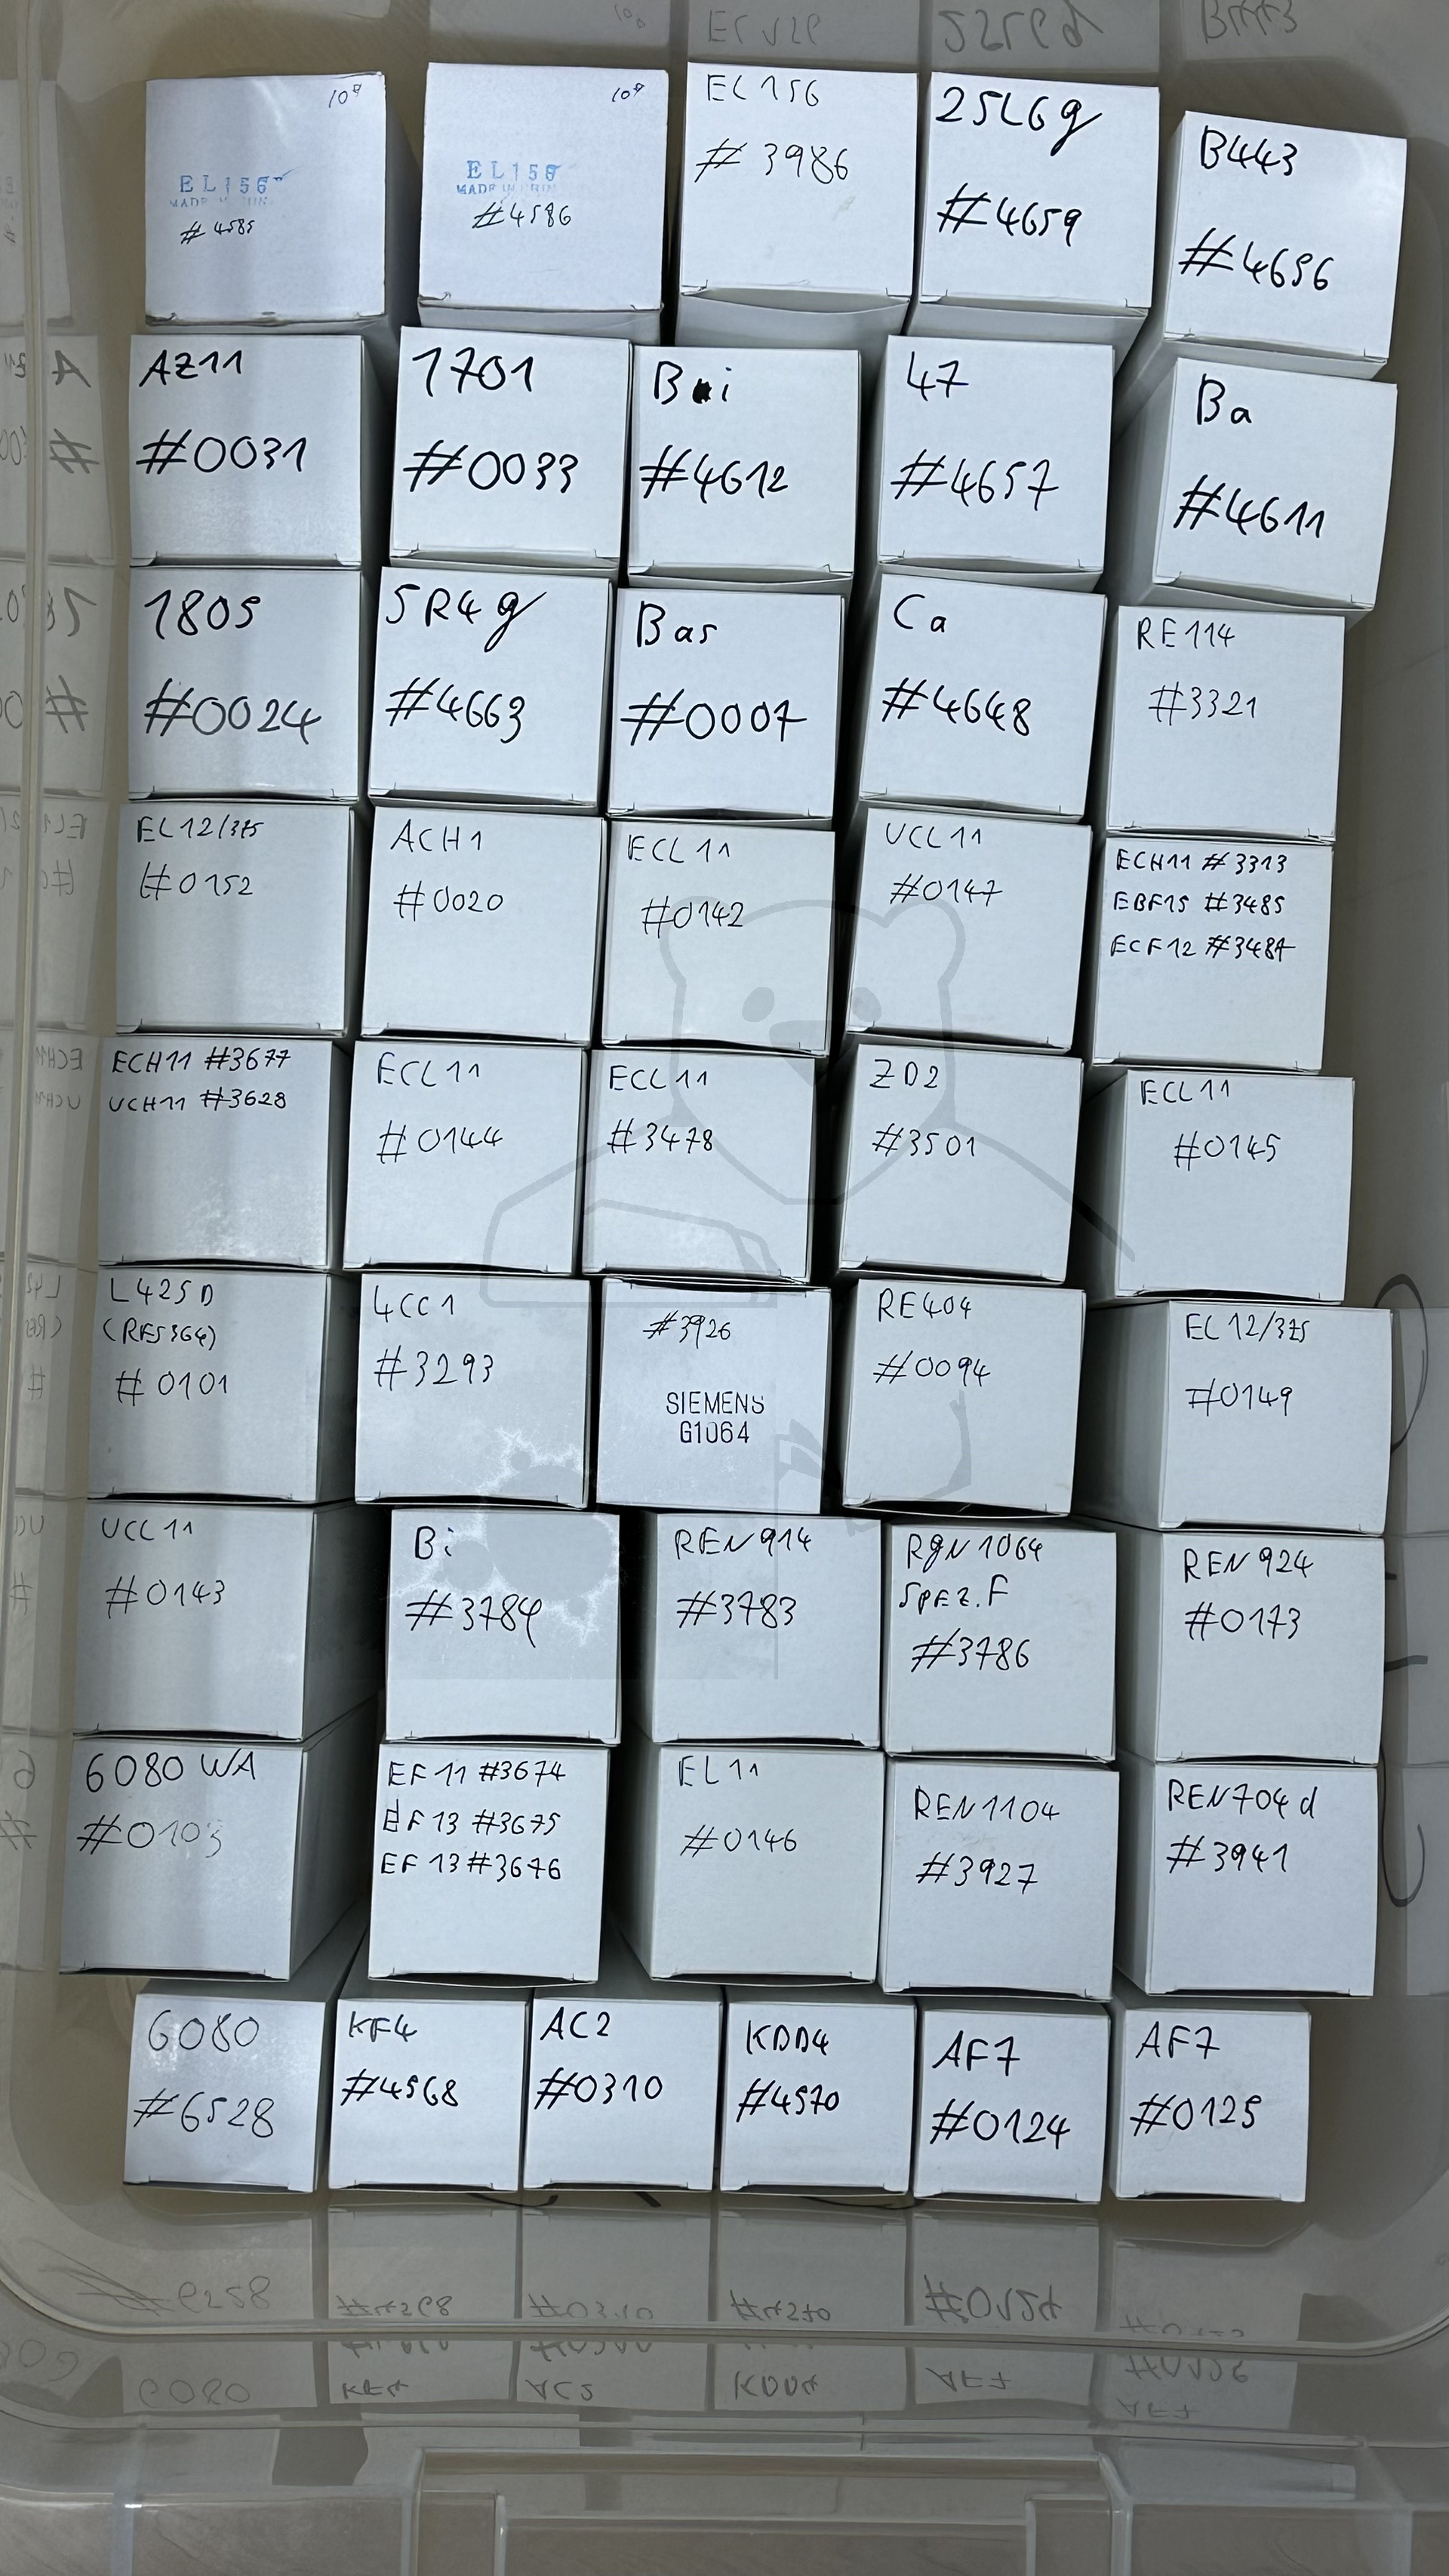 10
EL156
#4585
10
EL156
MADE IN
#4586
EL156
#3986
25L6g
#4659
B443
#4656
AZ11
#0031
1701
#0033
Bi
#4612
47
#4657
Ba
#4611
1805
#0024
5R4g
#4663
Bas
#0007
Ca
#4648
RE114
#3321
EL12/375
#0152
ACH1
#0020
ECL11
#0142
UCL11
#0147
ECH11 #3313
EBF15 #3485
ECF12 #3487
ECH11 #3677
UCH11 #3628
ECL11
#0144
ECL11
#3478
ZD2
#3501
ECL11
#0145
L425D
(RES364)
#0101
4CC1
#3293
#3926
SIEMENS
G1064
RE404
#0094
EL12/375
#0149
UCL11
#0143
Bi
#3784
REN914
#3783
RgN1064
SPEZ.F
#3786
REN924
#0173
6080WA
#0103
EF11 #3674
EF13 #3675
EF13 #3676
EL11
#0146
REN1104
#3927
REN704d
#3941
6080
#6528
KF4
#4568
AC2
#0310
KDD4
#4570
AF7
#0124
AF7
#0125